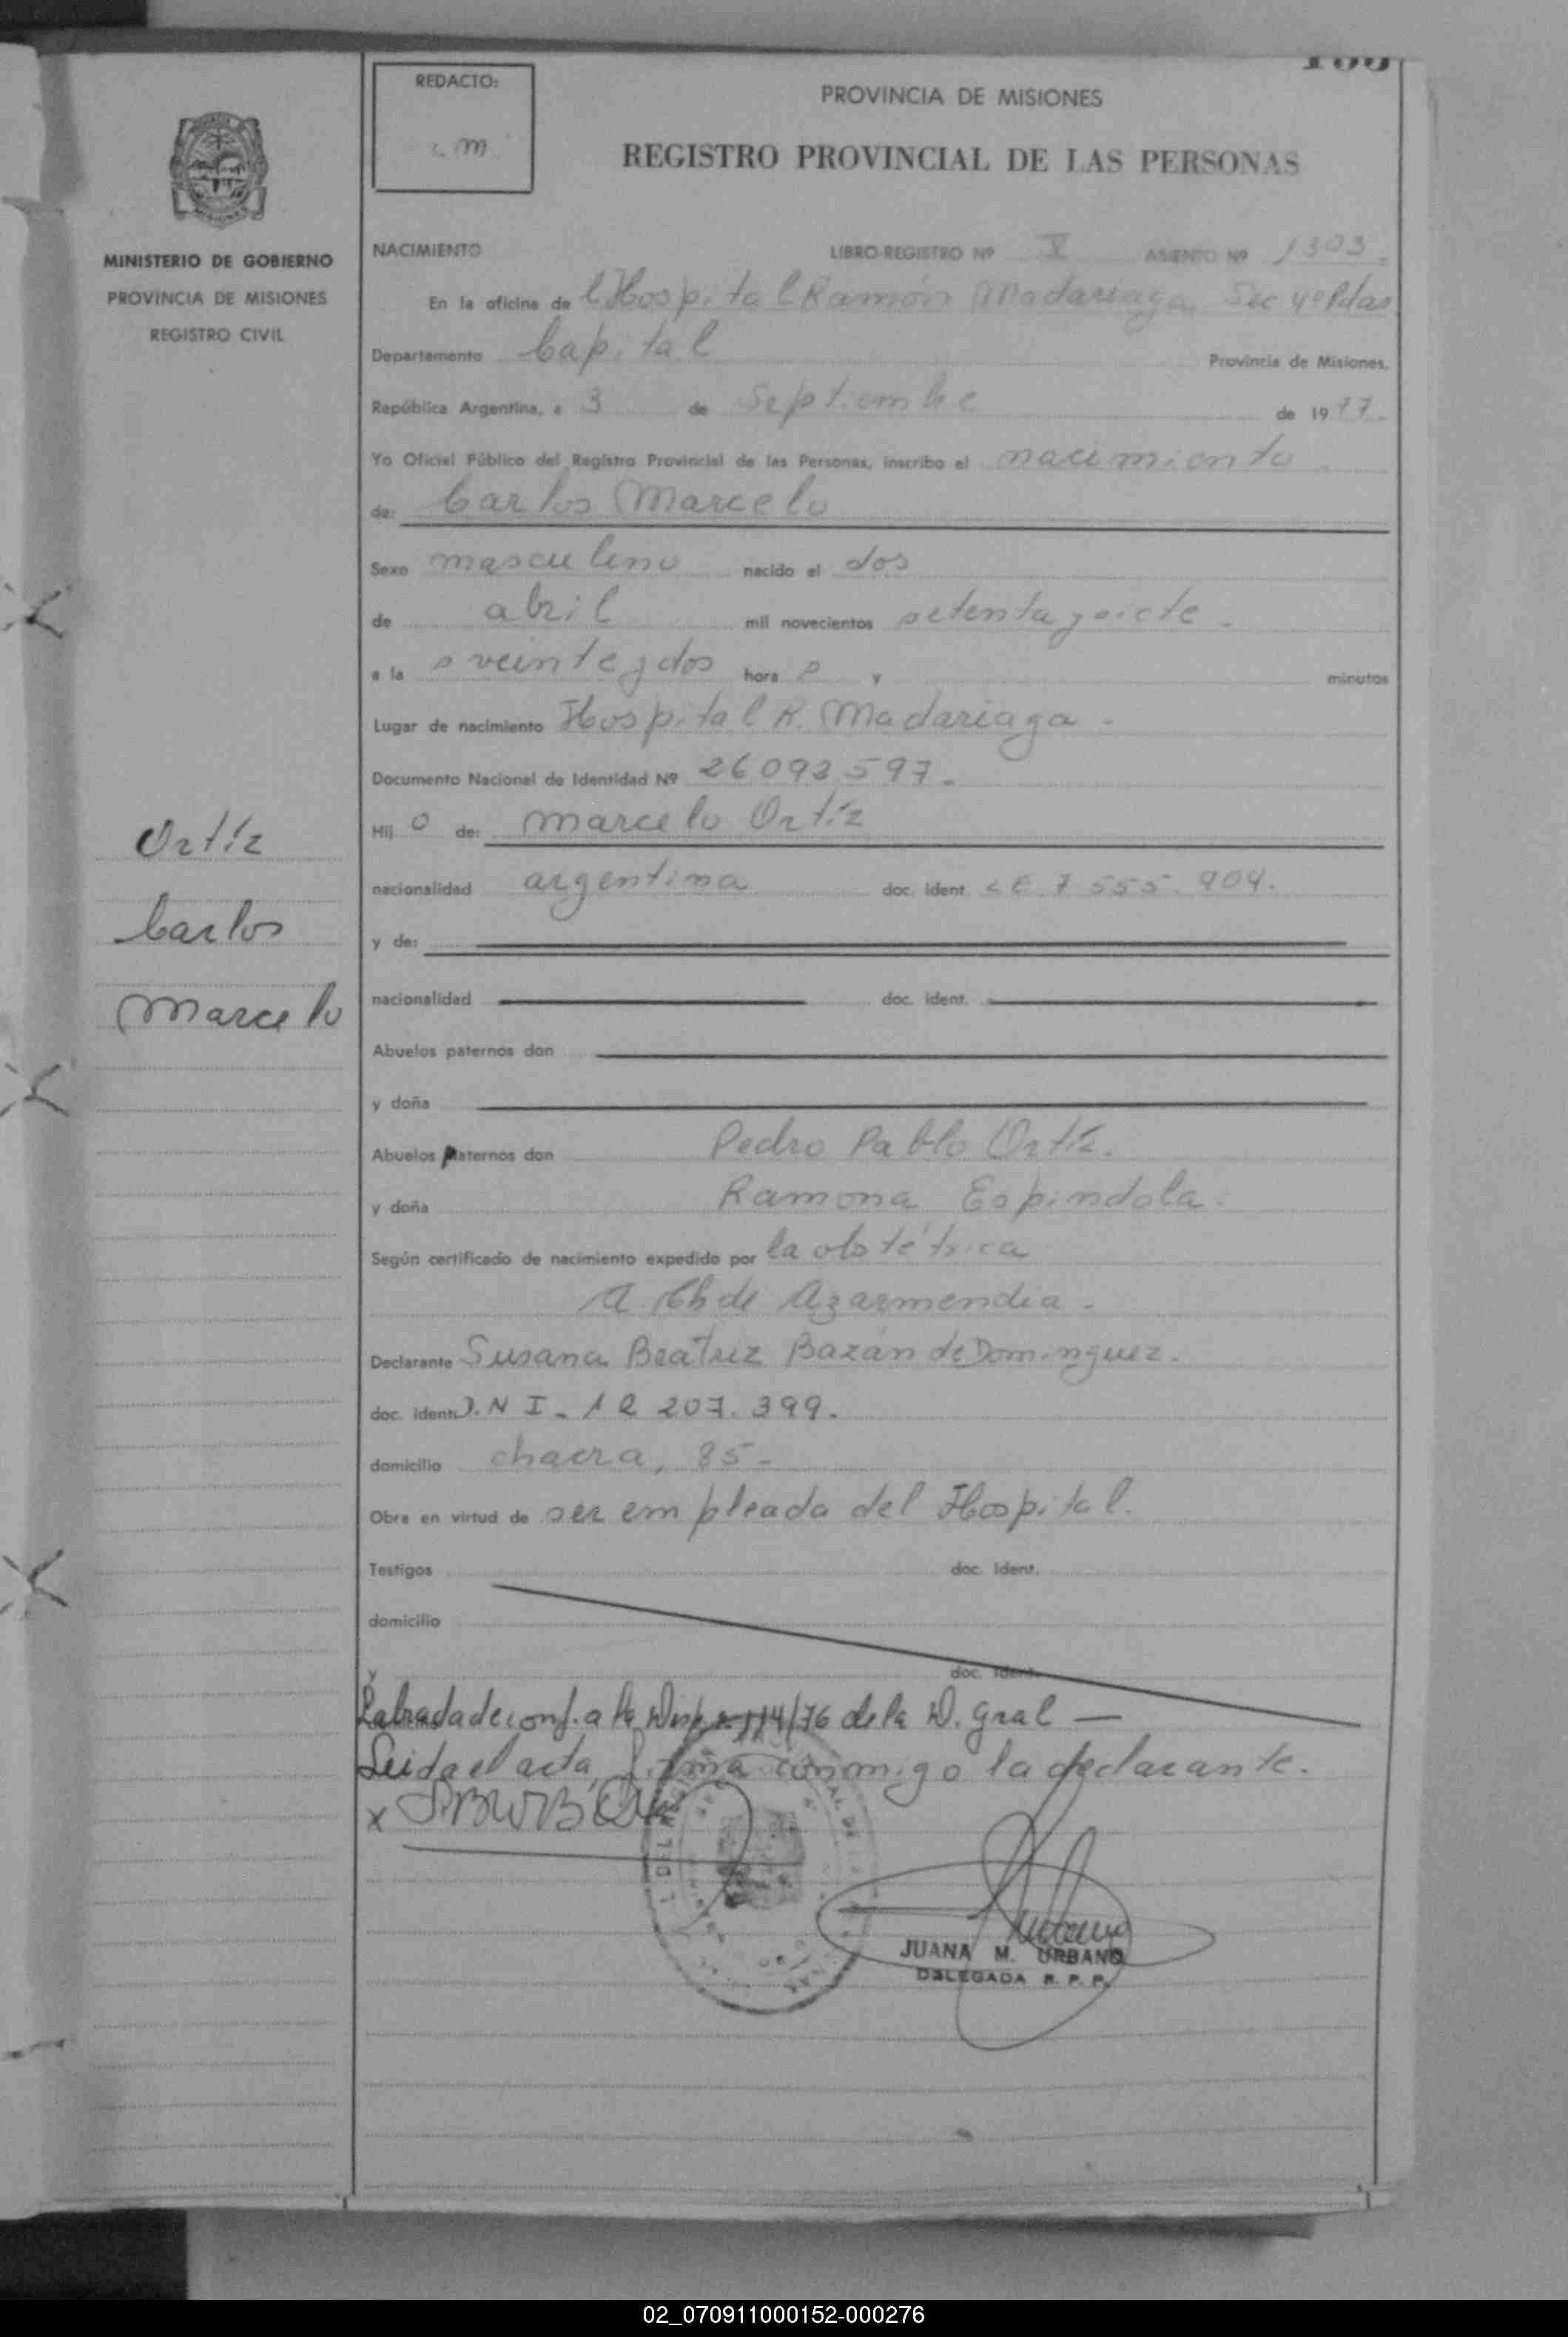 REDACTO:
PROVINCIA DE MISIONES
REGISTRO PROVINCIAL DE LAS PERSONAS
MINISTERIO DE GOBIERNO
PROVINCIA DE MISIONES
REGISTRO CIVIL
NACIMIENTO LIBRO-REGISTRO Nº V ASIENTO Nº 1303.
En la oficina del Hospital Ramón Madariaga Sec 4º Pdas
Departamento Capital Provincia de Misiones,
República Argentina, a 3 de Septiembre de 1977.
Yo Oficial Público del Registro Provincial de las Personas, inscribo el nacimiento.
de: Carlos Marcelo
Sexo masculino nacido el dos
de abril mil novecientos setenta y siete.
a la s veinte y dos hora s y minutos
Lugar de nacimiento Hospital R. Madariaga.
Documento Nacional de Identidad Nº 26 093 597.
Hij o de: Marcelo Ortíz
nacionalidad argentina doc. ident. LE 7 555 904.
y de:
nacionalidad doc. ident.
Abuelos paternos don
y doña
Abuelos paternos don Pedro Pablo Ortíz.
y doña Ramona Espindola.
Según certificado de nacimiento expedido por la obstétrica
A. Ch de Azarmendia.
Declarante Susana Beatriz Bazán de Dominguez.
doc. ident. D.N I. 12 207.399.
domicilio chacra, 85-
Obra en virtud de ser empleada del Hospital.
Testigos doc. ident.
domicilio
y doc. ident.
Labrada de conf. a la Disp. 114/76 de la D. Gral —
Leida el acta, firma conmigo la declarante.
x
JUANA M. URBANO
DELEGADA R. P. P.
Ortíz
Carlos
Marcelo
02_070911000152-000276